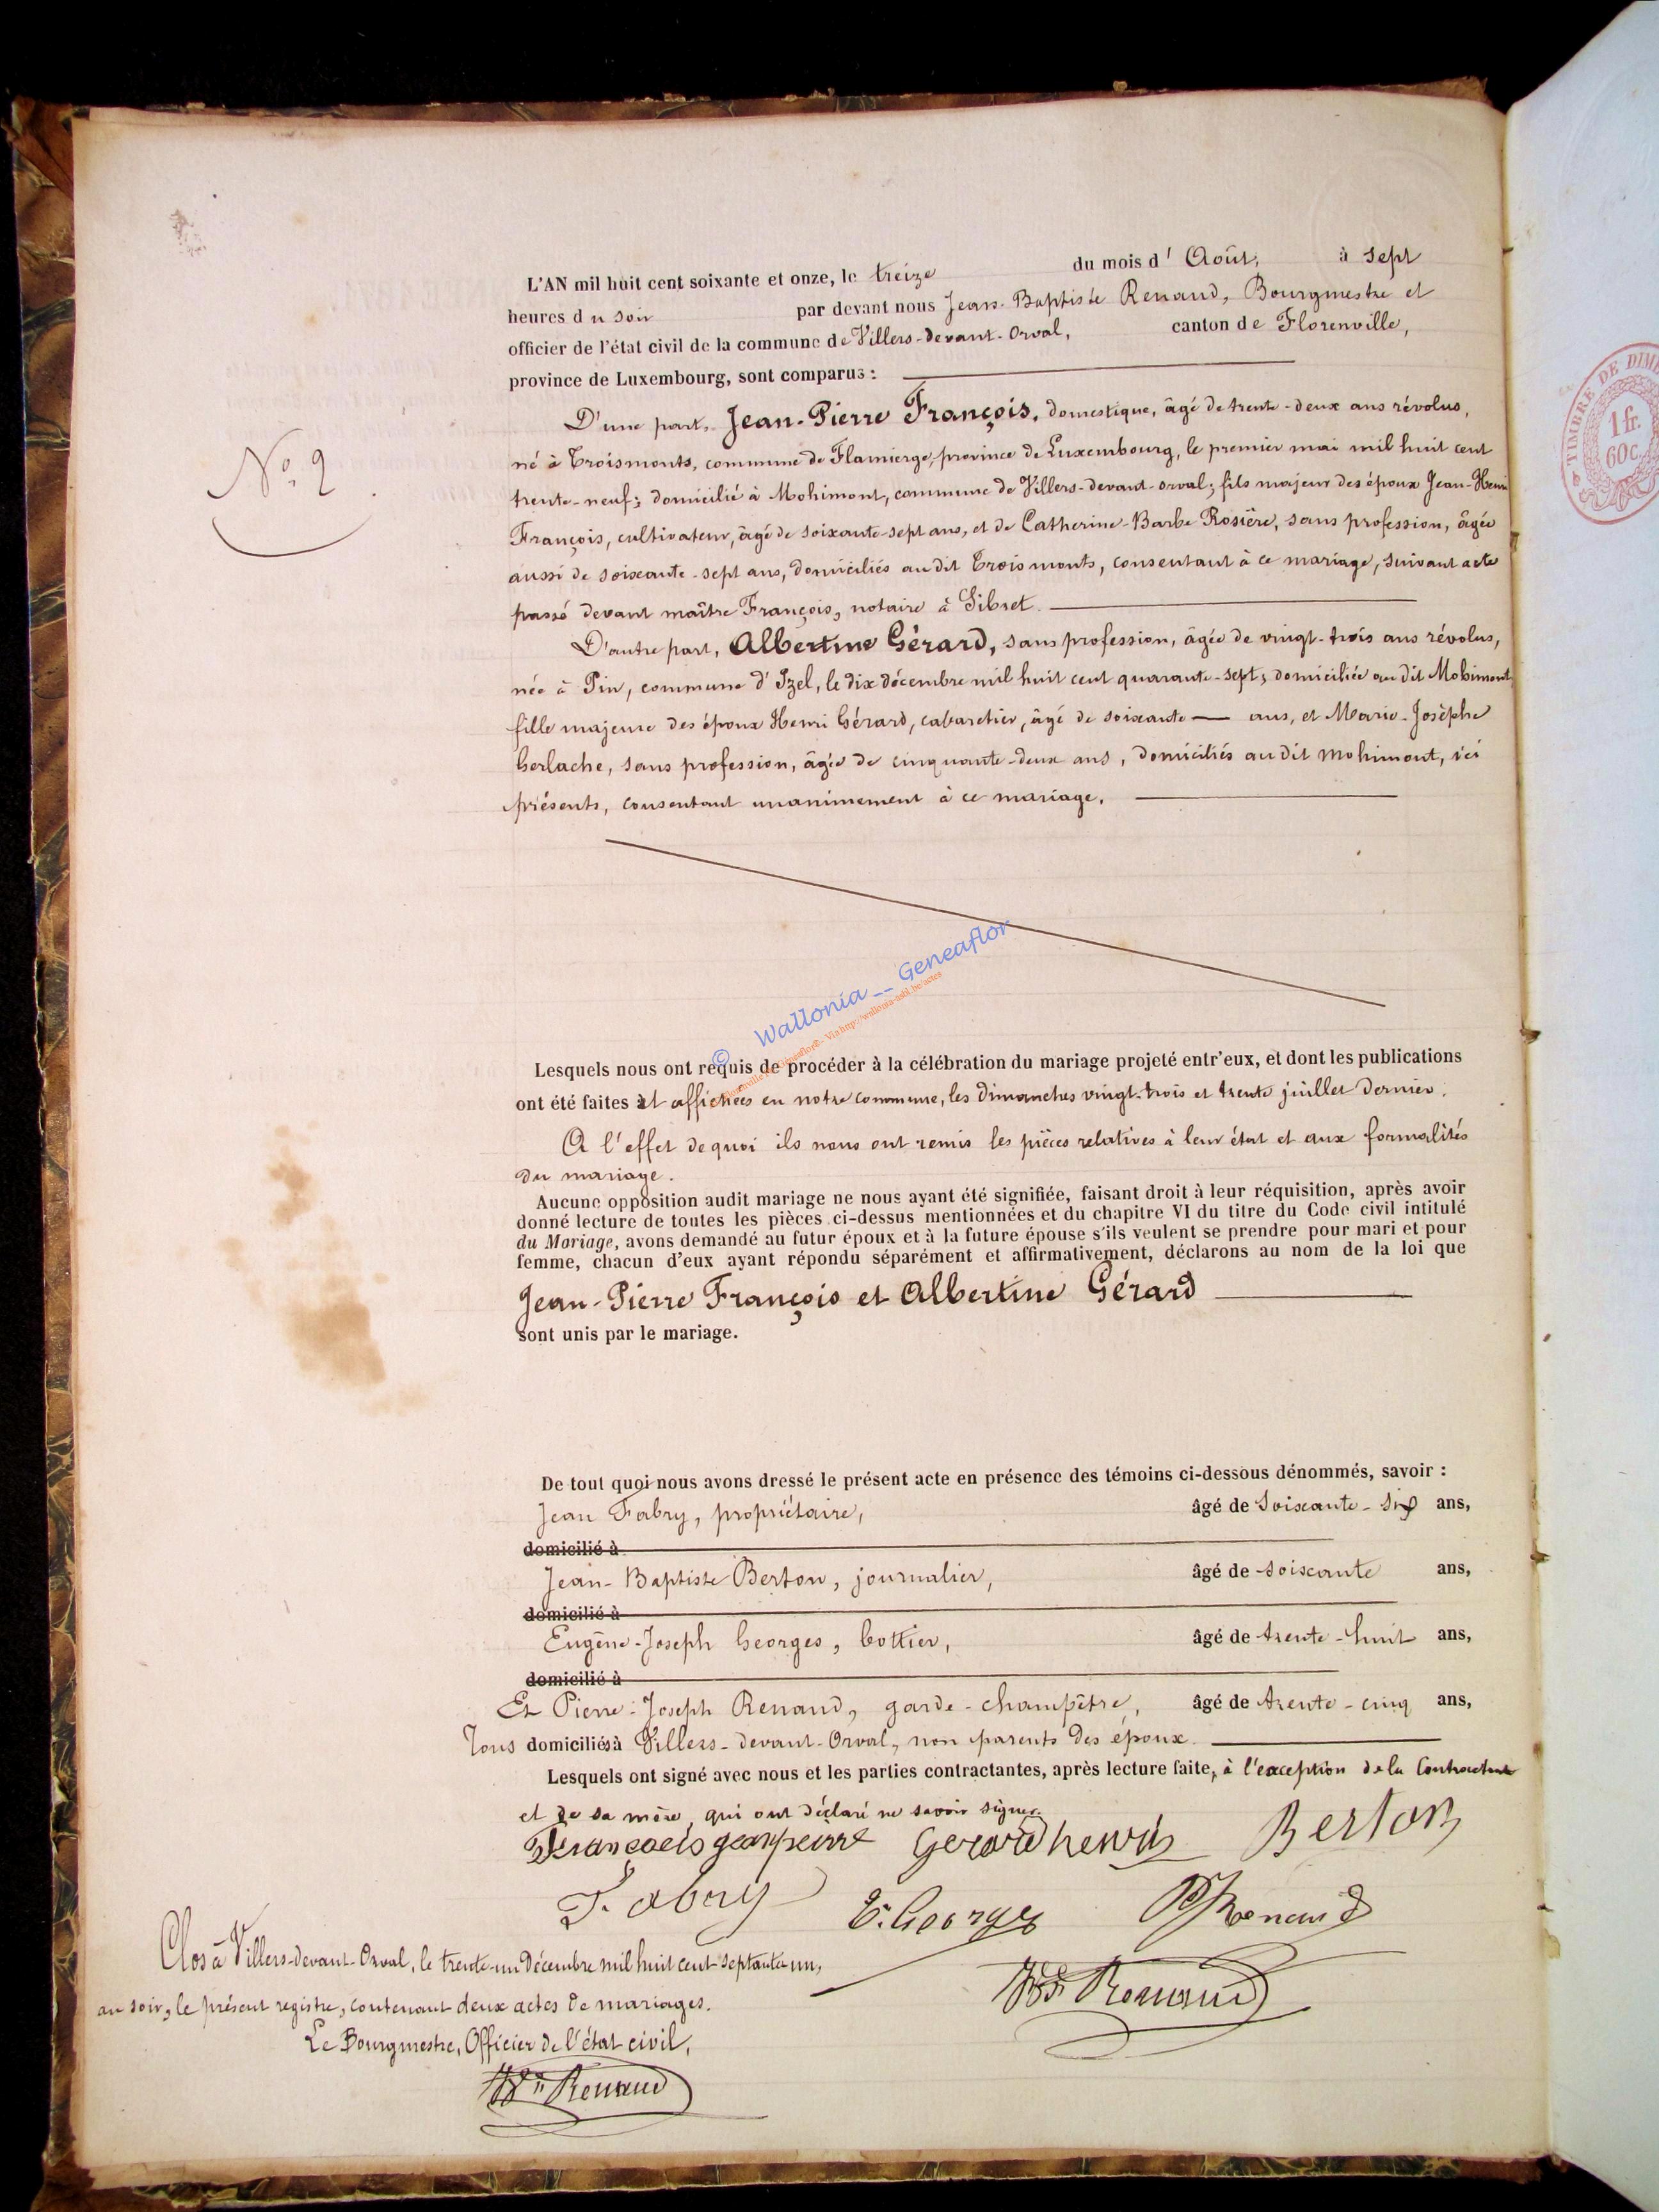 L'AN mil huit cent soixante et onze, le treize du mois d' Août, à sept
heures du soir par devant nous Jean-Baptiste Renaud, Bourgmestre et
officier de l'état civil de la commune de Villers-devant-Orval, canton de Florenville,
province de Luxembourg, sont comparus :
N° 2
D'une part, Jean-Pierre François, domestique, âgé de trente-deux ans révolus,
né à Troismonts, commune de Flamierge, province de Luxembourg, le premier mai mil huit cent
trente-neuf; domicilié à Mohimont, commune de Villers-devant-orval; fils majeur des époux Jean-Henri
François, cultivateur, âgé de soixante-sept ans, et de Catherine-Barbe Rosière, sans profession, âgée
aussi de soixante-sept ans, domiciliés au dit Troismonts, consentant à ce mariage, suivant acte
passé devant maître François, notaire à Sibret.
D'autre part, Albertine Gérard, sans profession, âgée de vingt-trois ans révolus,
née à Pin, commune d'Izel, le dix décembre mil huit cent quarante-sept; domiciliée au dit Mohimont,
fille majeure des époux Henri Gérard, cabaretier, âgé de soixante — ans, et Marie-Josèphe
Gerlache, sans profession, âgée de cinquante-deux ans, domiciliés au dit Mohimont, ici
présents, consentant unanimement à ce mariage.
© Wallonia __ Geneaflor
Via http://wallonia-asbl.be/actes
Lesquels nous ont requis de procéder à la célébration du mariage projeté entr'eux, et dont les publications
ont été faites et affichées en notre commune, les dimanches vingt-trois et trente juillet dernier.
A l'effet de quoi ils nous ont remis les pièces relatives à leur état et aux formalités
du mariage.
Aucune opposition audit mariage ne nous ayant été signifiée, faisant droit à leur réquisition, après avoir
donné lecture de toutes les pièces ci-dessus mentionnées et du chapitre VI du titre du Code civil intitulé
du Mariage, avons demandé au futur époux et à la future épouse s'ils veulent se prendre pour mari et pour
femme, chacun d'eux ayant répondu séparément et affirmativement, déclarons au nom de la loi que
Jean-Pierre François et Albertine Gérard
sont unis par le mariage.
De tout quoi nous avons dressé le présent acte en présence des témoins ci-dessous dénommés, savoir :
Jean Fabry, propriétaire, âgé de Soixante-six ans,
domicilié à
Jean-Baptiste Berton, journalier, âgé de soixante ans,
domicilié à
Eugène-Joseph Georges, bottier, âgé de trente-huit ans,
domicilié à
Et Pierre-Joseph Renaud, garde-champêtre, âgé de trente-cinq ans,
Tous domiciliés à Villers-devant-Orval, non parents des époux.
Lesquels ont signé avec nous et les parties contractantes, après lecture faite, à l'exception de la Contractante
et de sa mère, qui ont déclaré ne savoir signer.
Francoeis jeanpeirre Gerard henri Berton
J. Fabry E. Georges PJ Renaud
Clos à Villers-devant-Orval, le trente-un Décembre mil huit cent septante-un,
au soir, le présent registre, contenant deux actes de mariages.
Le Bourgmestre, Officier de l'état civil,
JBte Renaud
JBte Renaud
TIMBRE DE DIME
1 fr.
60 c.